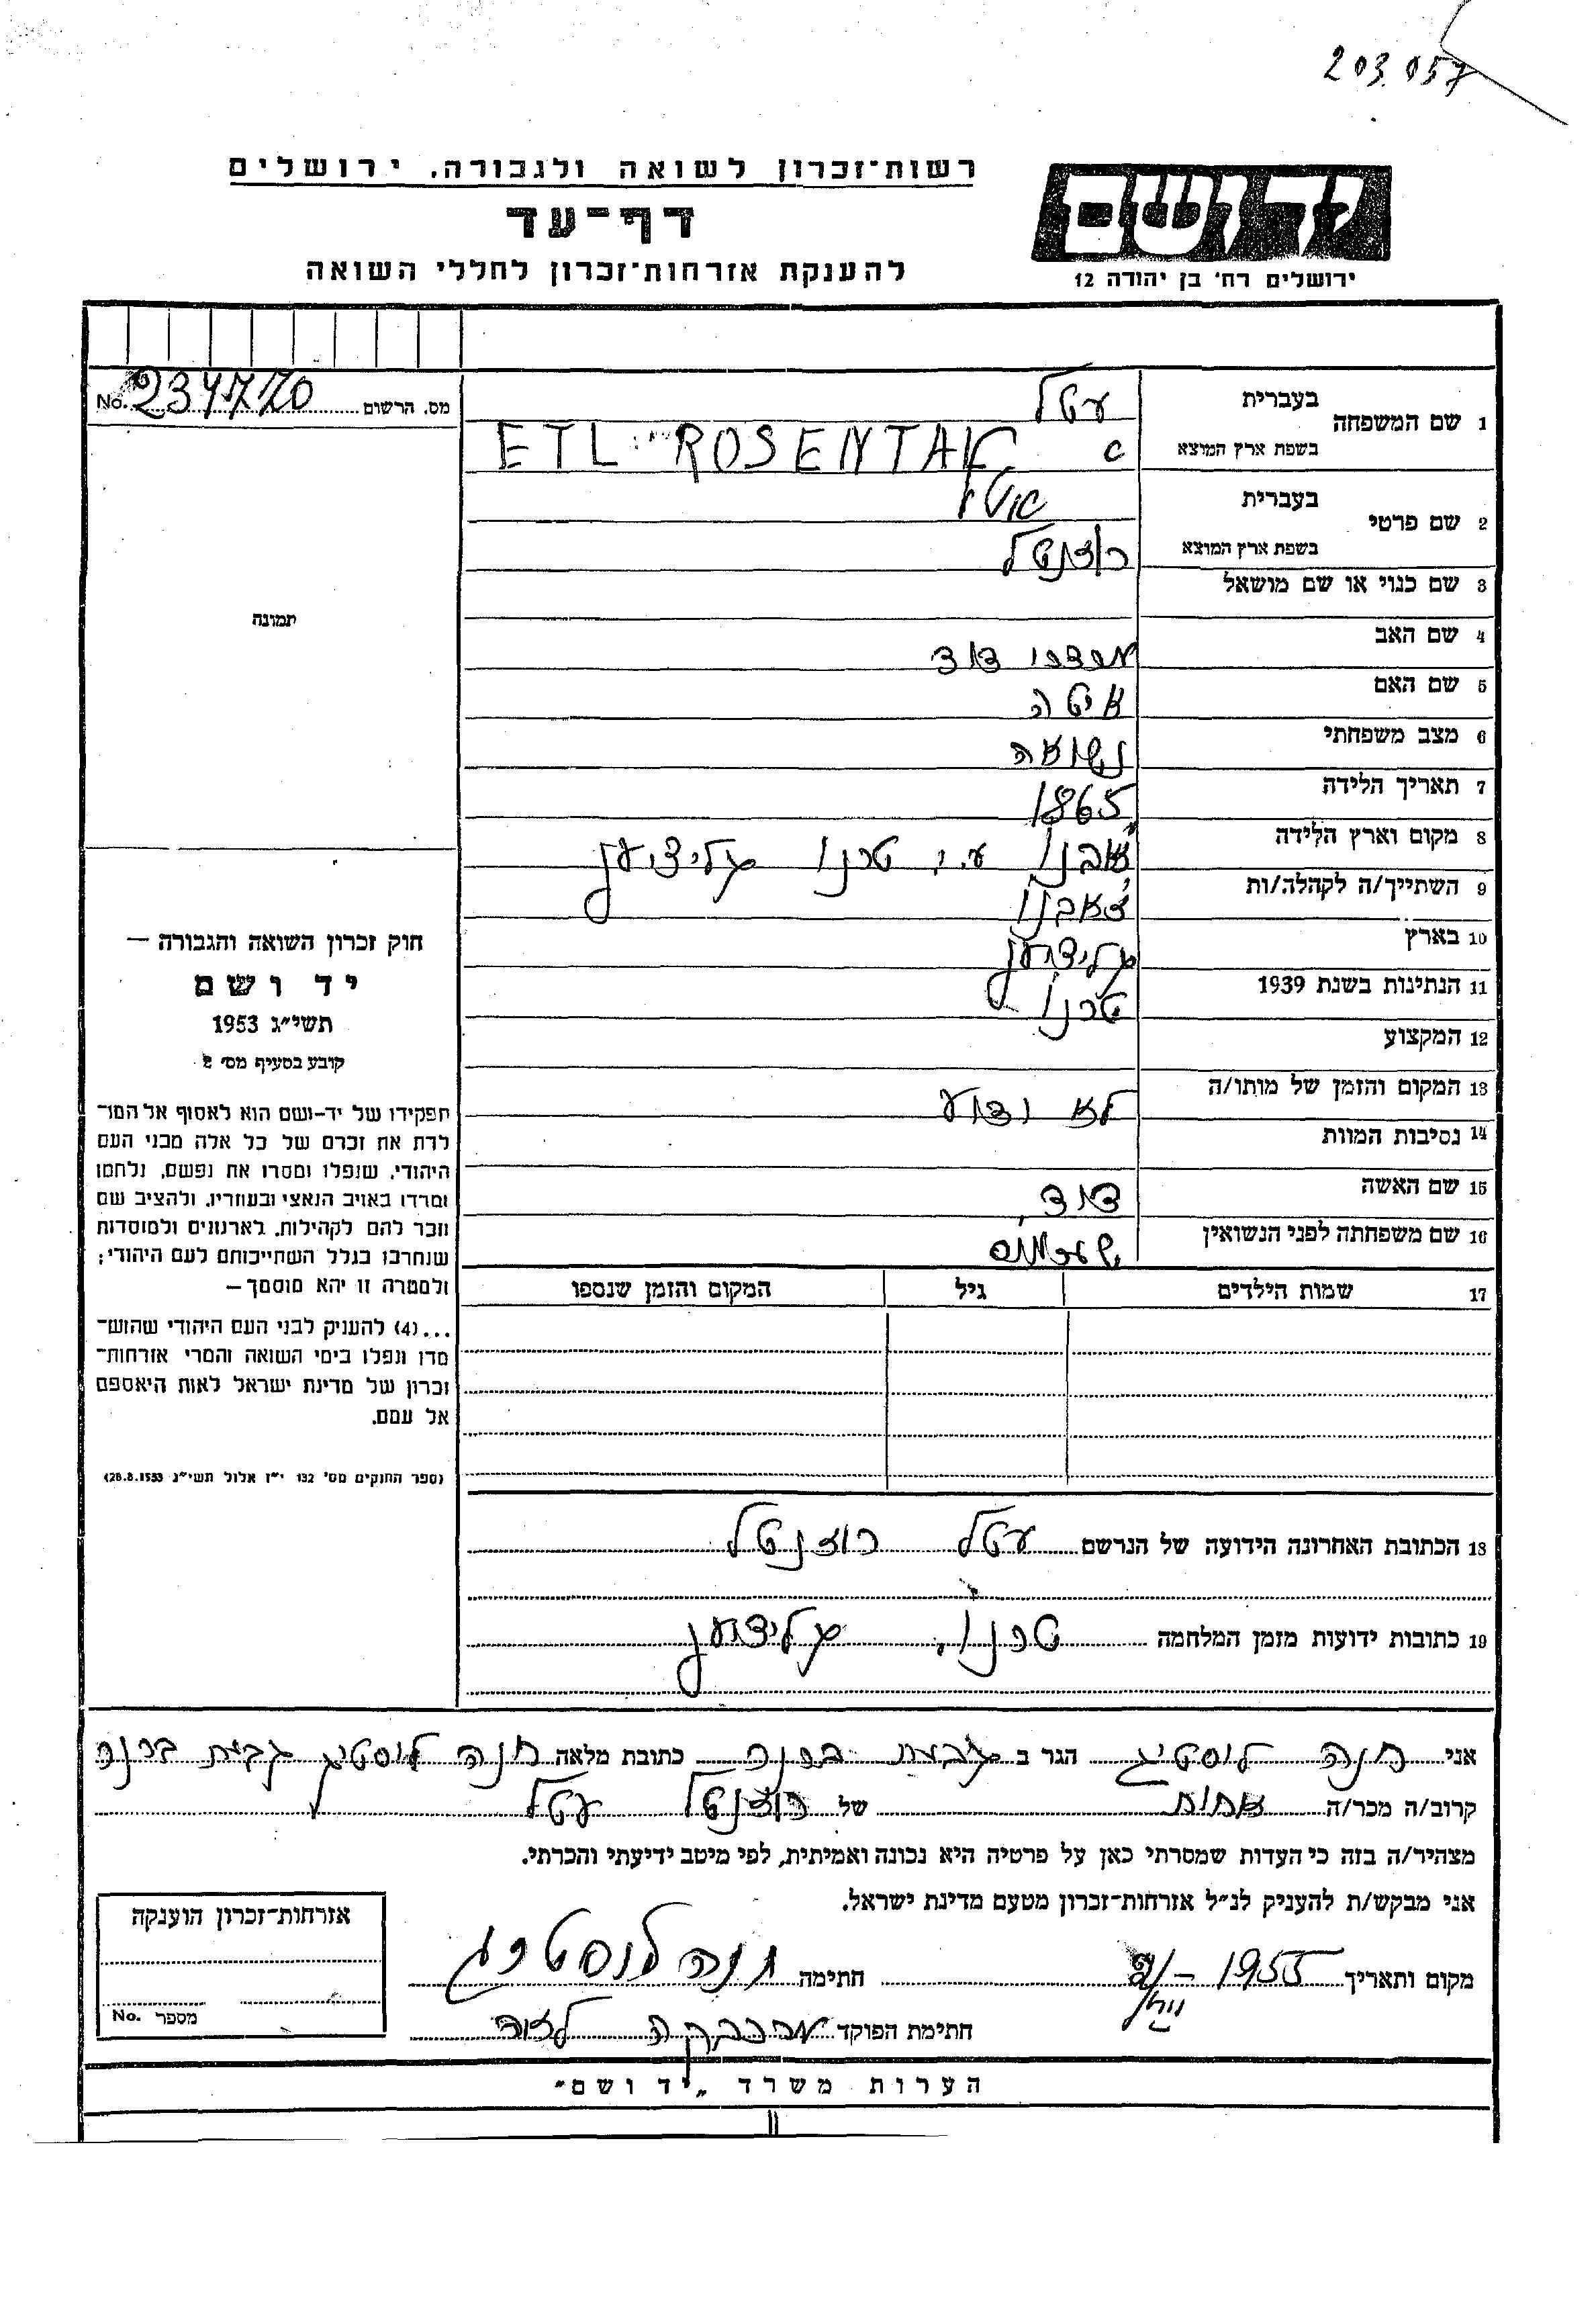 203.057
רשות־זכרון לשואה ולגבורה. ירושלים
דף־עד
להענקת אזרחות־זכרון לחללי השואה
יד ושם
ירושלים רח' בן יהודה 12
מס. הרשום No. 234770
תמונה
1 שם המשפחה בעברית עטל
בשפת ארץ המוצא ETL ROSENTAL
2 שם פרטי בעברית
בשפת ארץ המוצא רוזנטל
3 שם כנוי או שם מושאל
4 שם האב מרדכי דוד
5 שם האם איטה
6 מצב משפחתי נשואה
7 תאריך הלידה 1865
8 מקום וארץ הלידה ז'אבנו ע.י. טרנו גליציען
9 השתייך/ה לקהלה/ות ז'אבנו
10 בארץ גליציען
11 הנתינות בשנת 1939 טרנו
12 המקצוע
13 המקום והזמן של מותו/ה לא ידוע
14 נסיבות המוות
15 שם האשה דוד
16 שם משפחתה לפני הנשואין
17 שמות הילדים גיל המקום והזמן שנספו
חוק זכרון השואה והגבורה —
יד ושם
תשי״ג 1953
קובע בסעיף מס׳ 2
תפקידו של יד-ושם הוא לאסוף אל המו־
לדת את זכרם של כל אלה מבני העם
היהודי, שנפלו ומסרו את נפשם, נלחמו
ומרדו באויב הנאצי ובעוזריו, ולהציב שם
וזכר להם לקהילות, לארגונים ולמוסדות
שנחרבו בגלל השתייכותם לעם היהודי;
ולמטרה זו יהא מוסמך —
...(4) להעניק לבני העם היהודי שהוש־
מדו ונפלו בימי השואה והמרי אזרחות־
זכרון של מדינת ישראל לאות היאספם
אל עמם.
(ספר החוקים מס׳ 132 י״ז אלול תשי״ג 28.8.1953)
18 הכתובת האחרונה הידועה של הנרשם עטל רוזנטל
19 כתובות ידועות מזמן המלחמה טרנו, גליציען
אני חנה לוסטיג הגר ב גבעת ברנר כתובת מלאה חנה לוסטיג גבעת ברנר
קרוב/ה מכר/ה אחות של רוזנטל עטל
מצהיר/ה בזה כי העדות שמסרתי כאן על פרטיה היא נכונה ואמיתית, לפי מיטב ידיעתי והכרתי.
אני מבקש/ת להעניק לנ״ל אזרחות־זכרון מטעם מדינת ישראל.
מקום ותאריך 1955 חתימה חנה לוסטיג
חתימת הפוקד
אזרחות־זכרון הוענקה
מספר No.
הערות משרד „יד ושם״